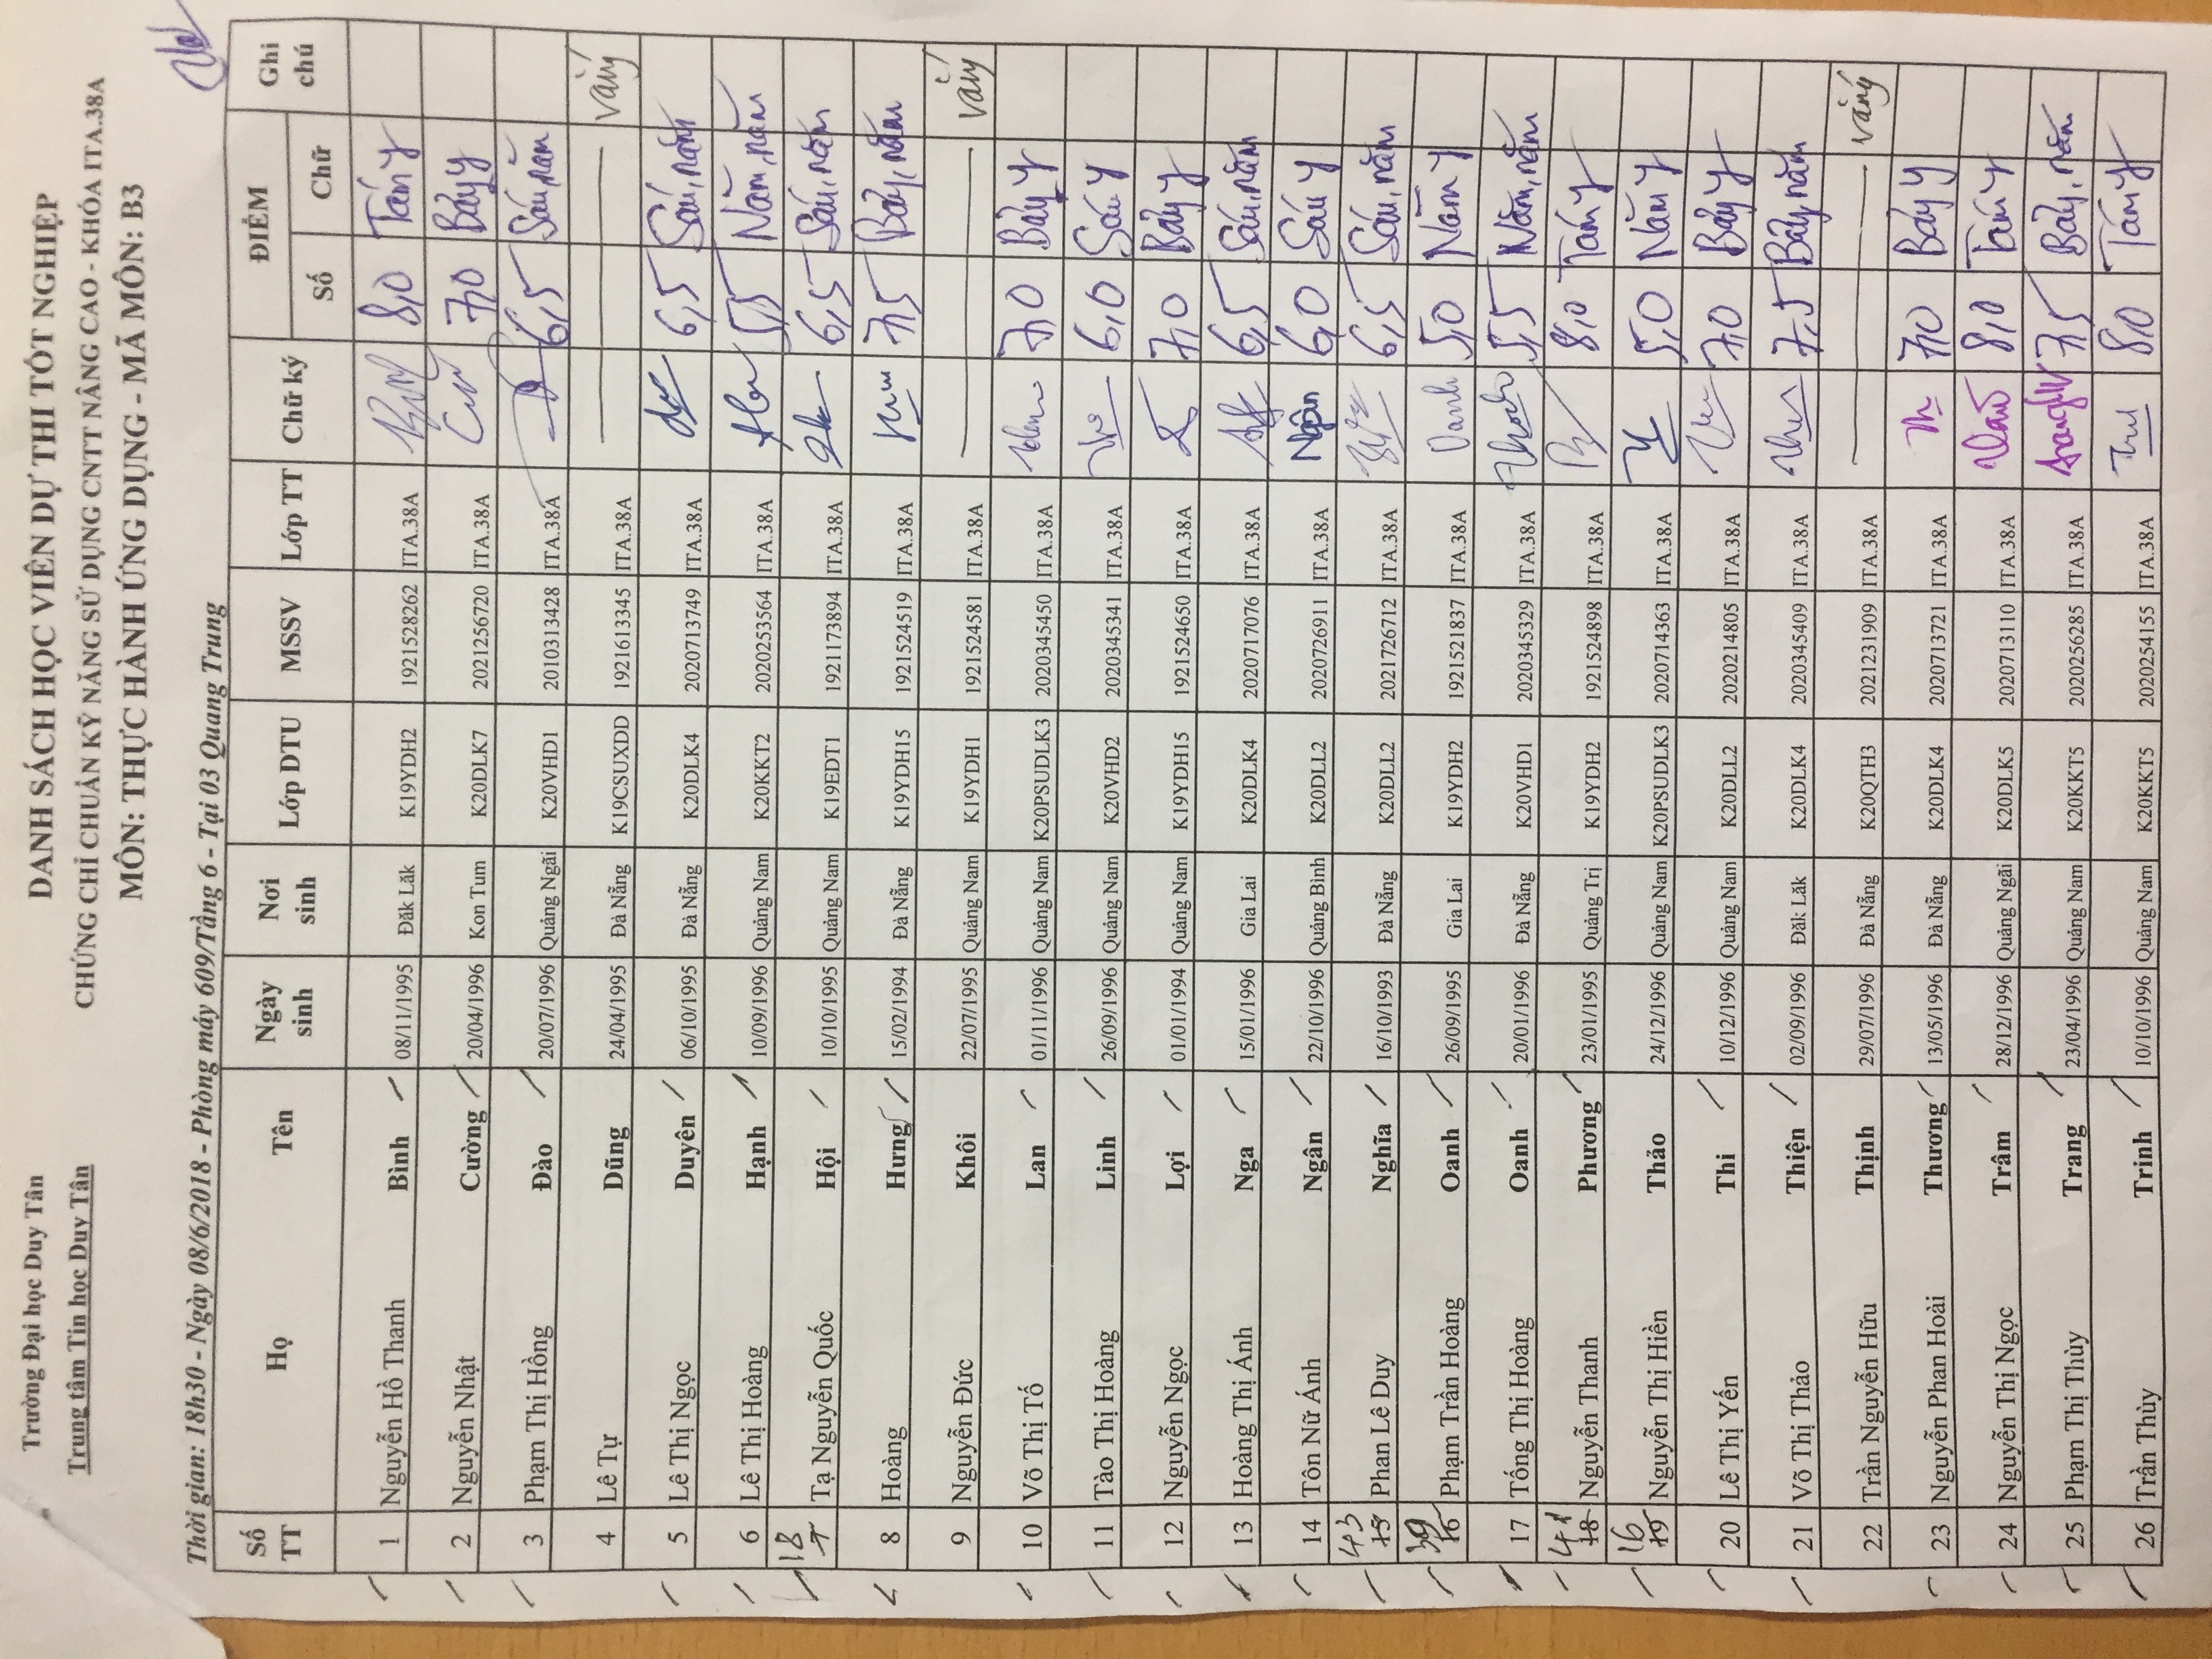 Trường Đại học Duy Tân
Trung tâm Tin học Duy Tân
DANH SÁCH HỌC VIÊN DỰ THI TỐT NGHIỆP
CHỨNG CHỈ CHUẨN KỸ NĂNG SỬ DỤNG CNTT NÂNG CAO - KHÓA ITA.38A
MÔN: THỰC HÀNH ỨNG DỤNG - MÃ MÔN: B3
Thời gian: 18h30 - Ngày 08/6/2018 - Phòng máy 609/Tầng 6 - Tại 03 Quang Trung
Số TT Họ Tên Ngày sinh Nơi sinh Lớp DTU MSSV Lớp TT Chữ ký ĐIỂM Số Chữ Ghi chú
1 Nguyễn Hồ Thanh Bình 08/11/1995 Đăk Lăk K19YDH2 1921528262 ITA.38A 8,0 Tám y
2 Nguyễn Nhật Cường 20/04/1996 Kon Tum K20DLK7 2021256720 ITA.38A 7,0 Bảy y
3 Phạm Thị Hồng Đào 20/07/1996 Quảng Ngãi K20VHD1 2010313428 ITA.38A 6,5 Sáu, năm
4 Lê Tự Dũng 24/04/1995 Đà Nẵng K19CSUXDD 1921613345 ITA.38A vắng
5 Lê Thị Ngọc Duyên 06/10/1995 Đà Nẵng K20DLK4 2020713749 ITA.38A 6,5 Sáu, năm
6 Lê Thị Hoàng Hạnh 10/09/1996 Quảng Nam K20KKT2 2020253564 ITA.38A 5,5 Năm, năm
18 7 Tạ Nguyễn Quốc Hội 10/10/1995 Quảng Nam K19EDT1 1921173894 ITA.38A 6,5 Sáu, năm
8 Hoàng Hưng 15/02/1994 Đà Nẵng K19YDH15 1921524519 ITA.38A 7,5 Bảy, năm
9 Nguyễn Đức Khôi 22/07/1995 Quảng Nam K19YDH1 1921524581 ITA.38A vắng
10 Võ Thị Tố Lan 01/11/1996 Quảng Nam K20PSUDLK3 2020345450 ITA.38A 7,0 Bảy y
11 Tào Thị Hoàng Linh 26/09/1996 Quảng Nam K20VHD2 2020345341 ITA.38A 6,0 Sáu y
12 Nguyễn Ngọc Lợi 01/01/1994 Quảng Nam K19YDH15 1921524650 ITA.38A 7,0 Bảy y
13 Hoàng Thị Ánh Nga 15/01/1996 Gia Lai K20DLK4 2020717076 ITA.38A 6,5 Sáu, năm
14 Tôn Nữ Ánh Ngân 22/10/1996 Quảng Bình K20DLL2 2020726911 ITA.38A Ngân 6,0 Sáu y
43 15 Phan Lê Duy Nghĩa 16/10/1993 Đà Nẵng K20DLL2 2021726712 ITA.38A 6,5 Sáu, năm
16 Phạm Trần Hoàng Oanh 26/09/1995 Gia Lai K19YDH2 1921521837 ITA.38A Oanh 5,0 Năm y
17 Tống Thị Hoàng Oanh 20/01/1996 Đà Nẵng K20VHD1 2020345329 ITA.38A 5,5 Năm, năm
41 18 Nguyễn Thanh Phương 23/01/1995 Quảng Trị K19YDH2 1921524898 ITA.38A 8,0 Tám y
16 19 Nguyễn Thị Hiền Thảo 24/12/1996 Quảng Nam K20PSUDLK3 2020714363 ITA.38A 5,0 Năm y
20 Lê Thị Yến Thi 10/12/1996 Quảng Nam K20DLL2 2020214805 ITA.38A 7,0 Bảy y
21 Võ Thị Thảo Thiện 02/09/1996 Đăk Lăk K20DLK4 2020345409 ITA.38A 7,5 Bảy, năm
22 Trần Nguyễn Hữu Thịnh 29/07/1996 Đà Nẵng K20QTH3 2021231909 ITA.38A vắng
23 Nguyễn Phan Hoài Thương 13/05/1996 Đà Nẵng K20DLK4 2020713721 ITA.38A 7,0 Bảy y
24 Nguyễn Thị Ngọc Trâm 28/12/1996 Quảng Ngãi K20DLK5 2020713110 ITA.38A 8,0 Tám y
25 Phạm Thị Thùy Trang 23/04/1996 Quảng Nam K20KKT5 2020256285 ITA.38A 7,5 Bảy, năm
26 Trần Thùy Trinh 10/10/1996 Quảng Nam K20KKT5 2020254155 ITA.38A 8,0 Tám y